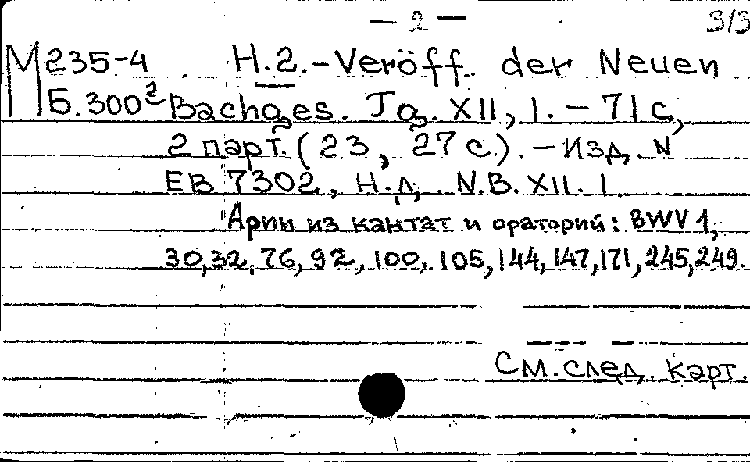 — 2 — 3/3
М 235-4 H.2.-Veröff. der Neuen
Б.300² Bachges. Jg. XII, 1. – 71 с.,
2 парт. (23, 27 с.). – Изд. N
EB 7302, Н.д. N.B. XII. 1
Арии из кантат и ораторий: BWV 1,
30, 32, 76, 92, 100, 105, 144, 147, 171, 245, 249.
См. след. карт.